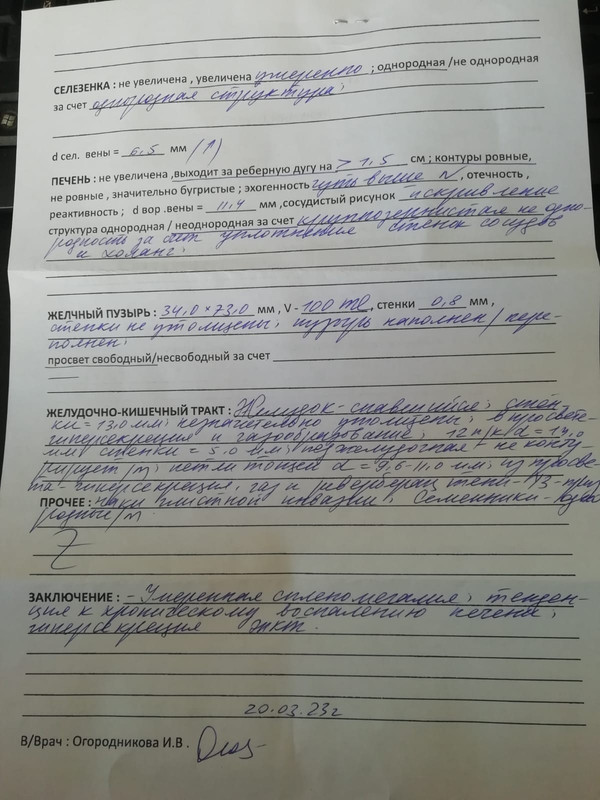 СЕЛЕЗЕНКА : не увеличена , увеличена умеренно ; однородная /не однородная
за счет однородная структура;
d сел. вены = 6,5 мм (↑)
ПЕЧЕНЬ : не увеличена ,выходит за реберную дугу на > 1,5 см ; контуры ровные,
не ровные , значительно бугристые ; эхогенность чуть выше N, отечность ,
реактивность ; d вор .вены = 11,4 мм ,сосудистый рисунок искривление
структура однородная / неоднородная за счет крупнозернистая не одно-
родность за счёт уплотнения стенок сосудов
и холанг.
ЖЕЛЧНЫЙ ПУЗЫРЬ : 34,0 × 73,0 мм , V - 100 ml, стенки 0,8 мм ,
стенки не утолщены; пузырь наполнен/пере-
полнен;
просвет свободный/несвободный за счет
ЖЕЛУДОЧНО-КИШЕЧНЫЙ ТРАКТ : Желудок - спавшийся; стен-
ки = 13,0 мм; незначительно утолщены; в просвете
гиперсекреция и газообразование; 12 п/к/ d = 14,0
мм стенки = 5,0 мм; поджелудочная - не конту-
рирует/m; петли тощей d = 9,6-11,0 мм; из просве-
та - гиперсекреция, газ и ревербер
ПРОЧЕЕ : наки глистной инвазии; Семенники -
родные/m.
Z
ЗАКЛЮЧЕНИЕ : - Умеренная спленомегалия; тенден-
ция к хроническому воспалению печени;
гиперсекреция жкт.
20.03.23г
В/Врач : Огородникова И.В .